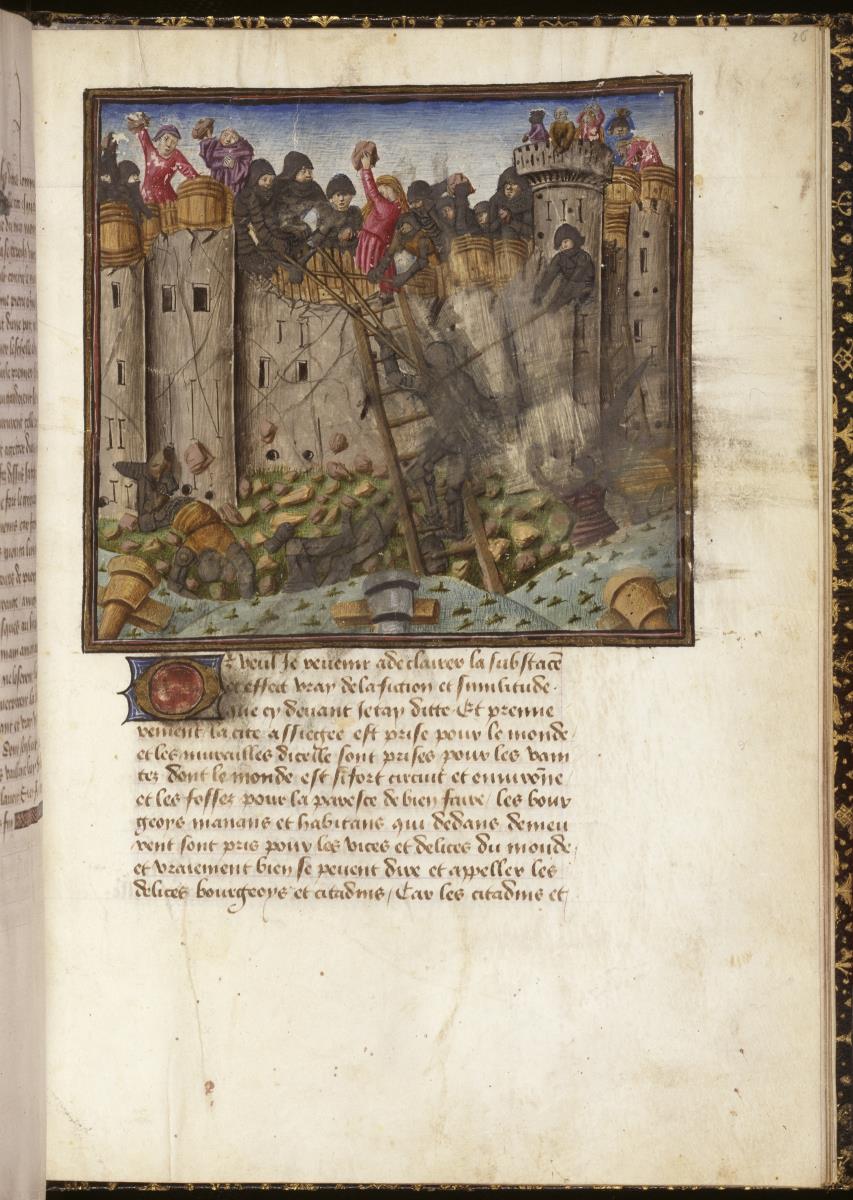 26
Or veul Je revenir a declairer la substāce
et effect vray de la fiction et similitude.
que cy devant Je tay ditte. Et premie
rement la cite assiegee est prise pour le monde.
et les murailles dicelle sont prises pour les vani
tez dont le monde est si fort circuit et enuirōne
et les fossez pour la paresce de bien faire / les bour
geoys manans et habitans qui dedans demeu
rent sont pris pour les vices et delices du monde.
et vraiement bien se peuent dire et appeller les
delices bourgeoys et citadins / Car les citadins et